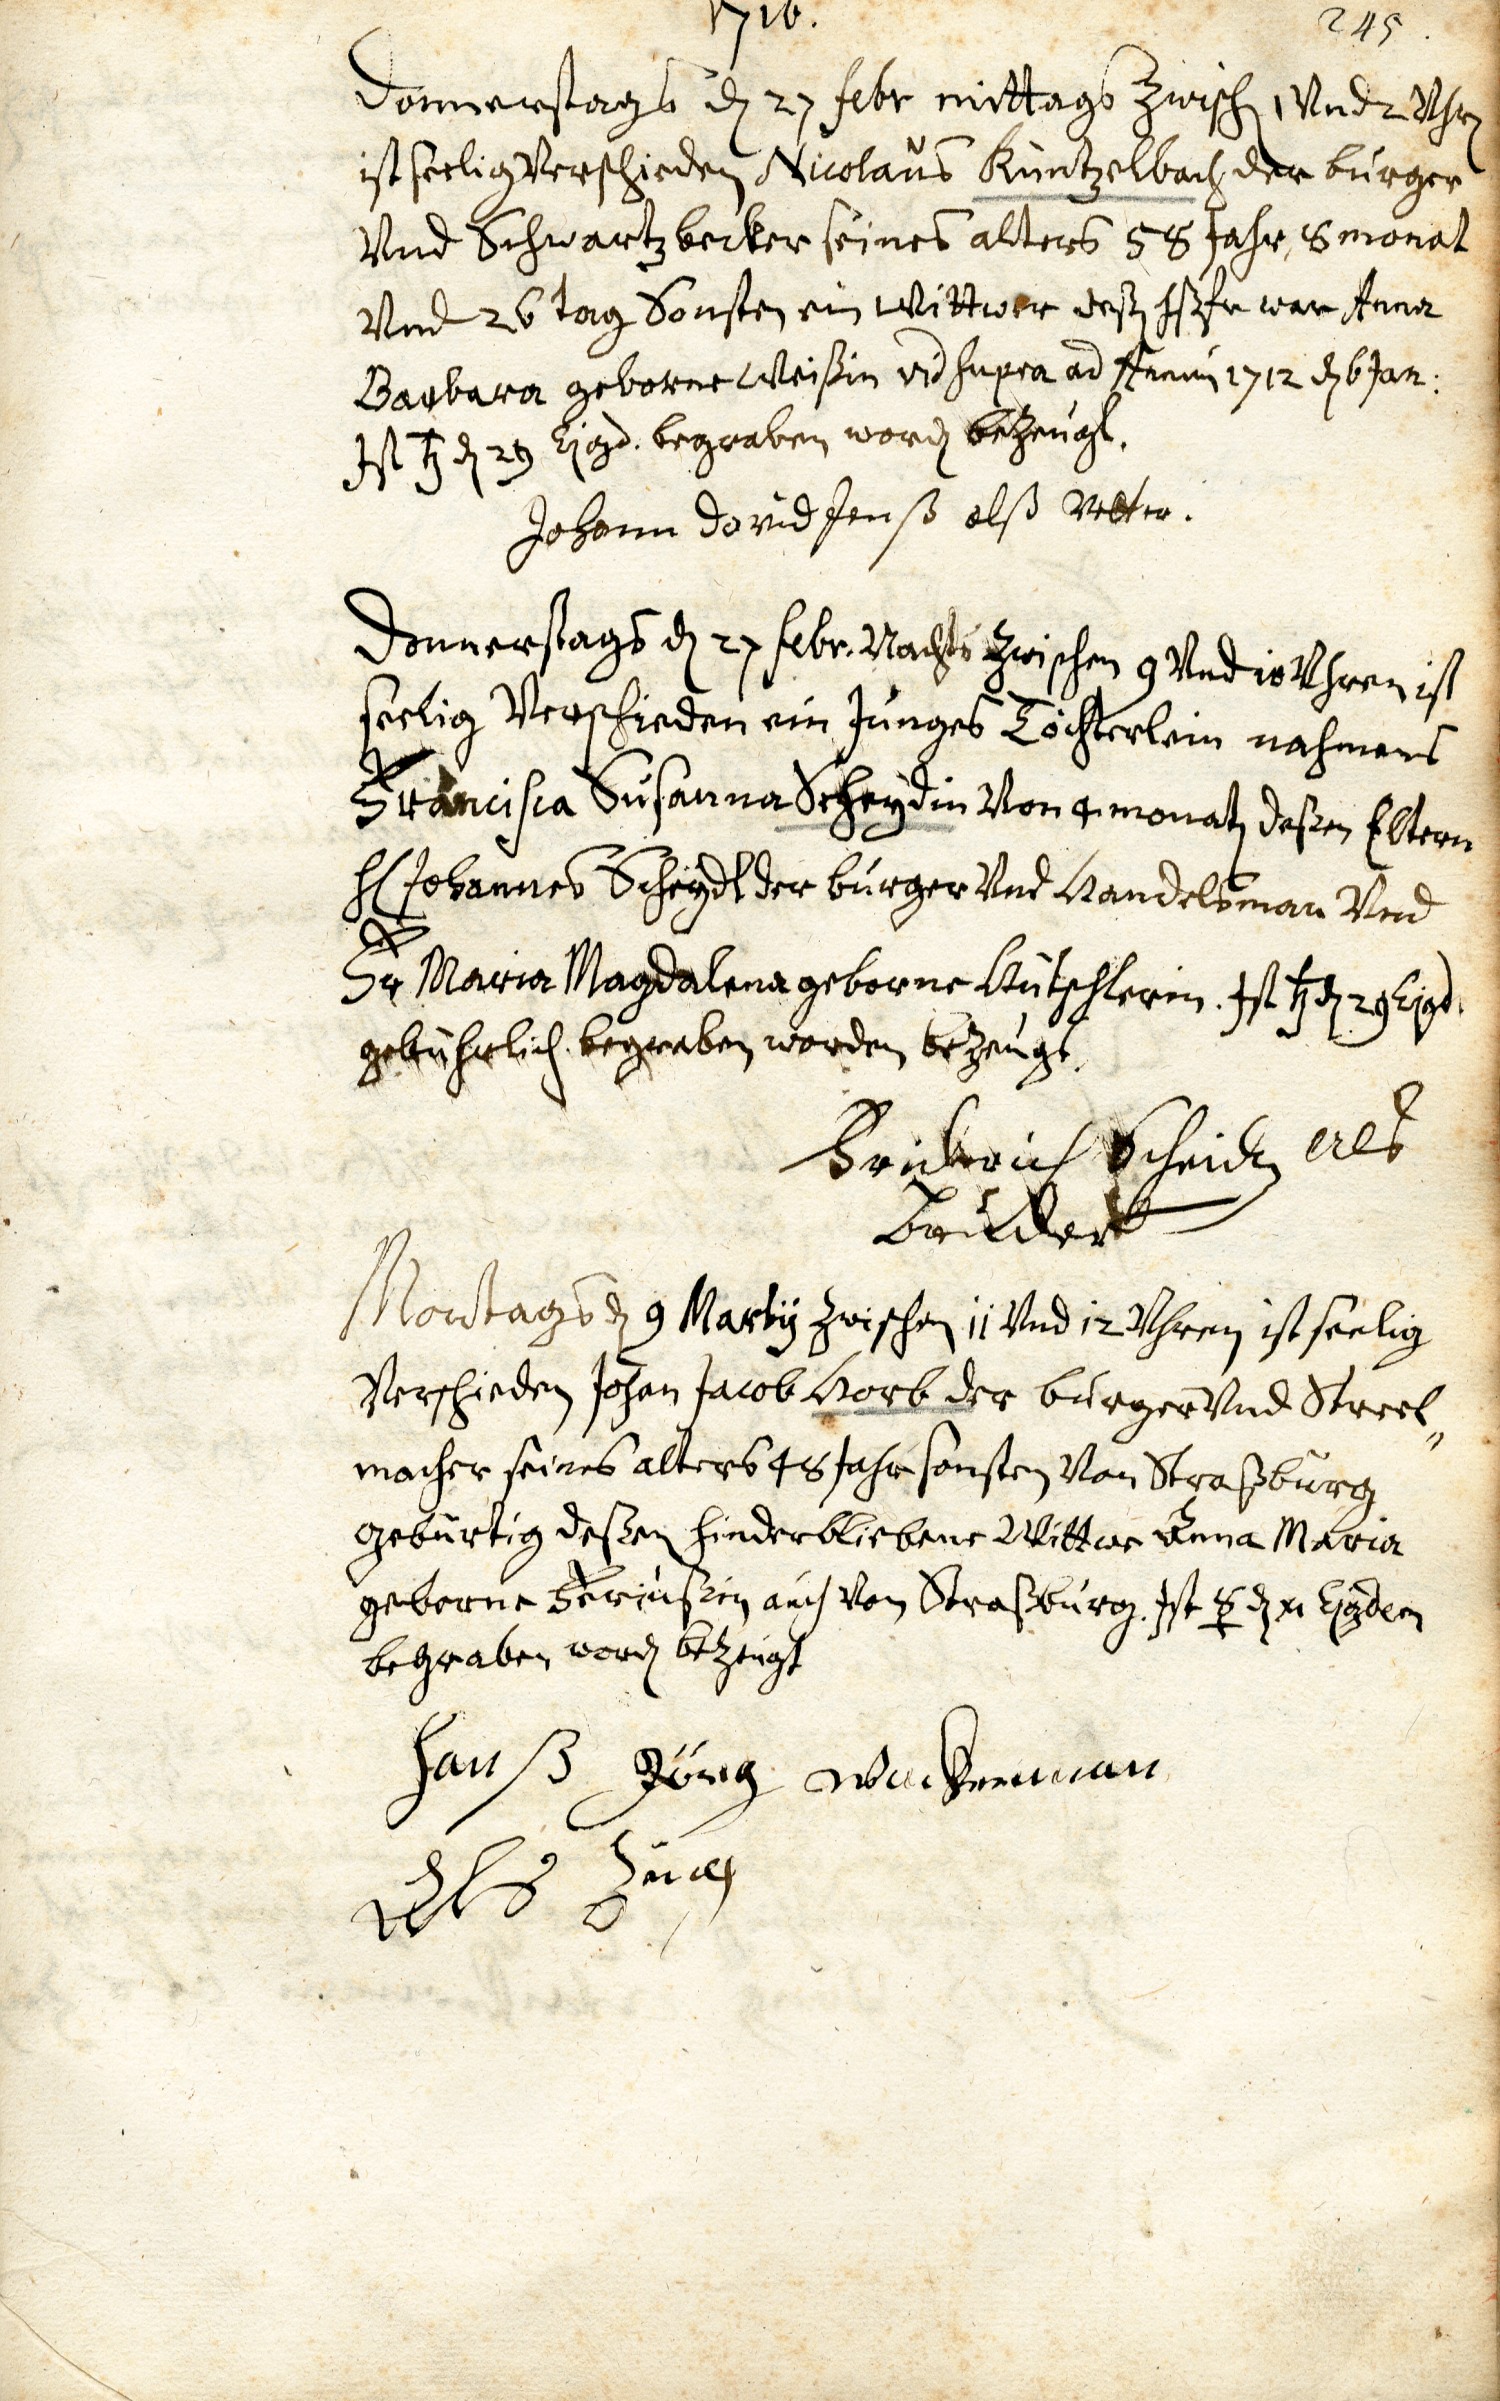 1716.
245.
Donnerstags dẽ 27 febr mittags Zwischẽ 1 Vnd 2 Vhrẽ
ist seelig Verschieden Nicolaus Küntzelbach der burger
Vnd Schwartzbecker seines alters 58 Jahr, 8 monat
Vnd 26 tag Sonsten ein Wittwer deßẽ haußfr war Anna
Barbara geborne Weißin vid supra ad Annum 1712 dẽ 6 Jan:
Ist ♄ dẽ 29 Ejgd. begraben wordẽ bezeugt.
Johann david alß Vetter.
Donnerstags dẽ 27 febr. Nachts Zwischen 9 Vnd 10 Vhren ist
seelig Verschieden ein Junges Töchterlein nahmens
Francisca Susanna Scheydin Von 4 monatẽ deßen Eltern
H Johannes Scheydt der burger Vnd Handelsman Vnd
Fr Maria Magdalena geborne Kütschlerin. Ist ♄ dẽ 29 Ejgd.
gebührlich begraben worden bezeugt.
Friderich Scheidt als
bruder
Montags dẽ 9 Martij Zwischen 11 Vnd 12 Vhren ist seelig
Verschieden Johan Jacob Korb der burger Vnd Streel„
macher seines alters 48 Jahr sonsten Von Straßburg
gebürtig deßen hinderbliebene Wittwe Anna Maria
geborne auch Von Straßburg. Ist ☿ dẽ 11 Ejgden
begraben wordẽ bezeugt
Hanß Jörg Wackermman
Als